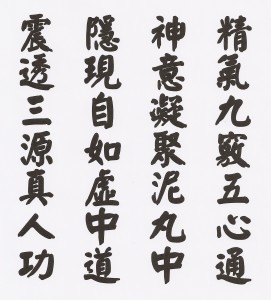 精氣九竅五心通
神意凝聚泥丸中
隱現自如虛中道
震透三源真人功